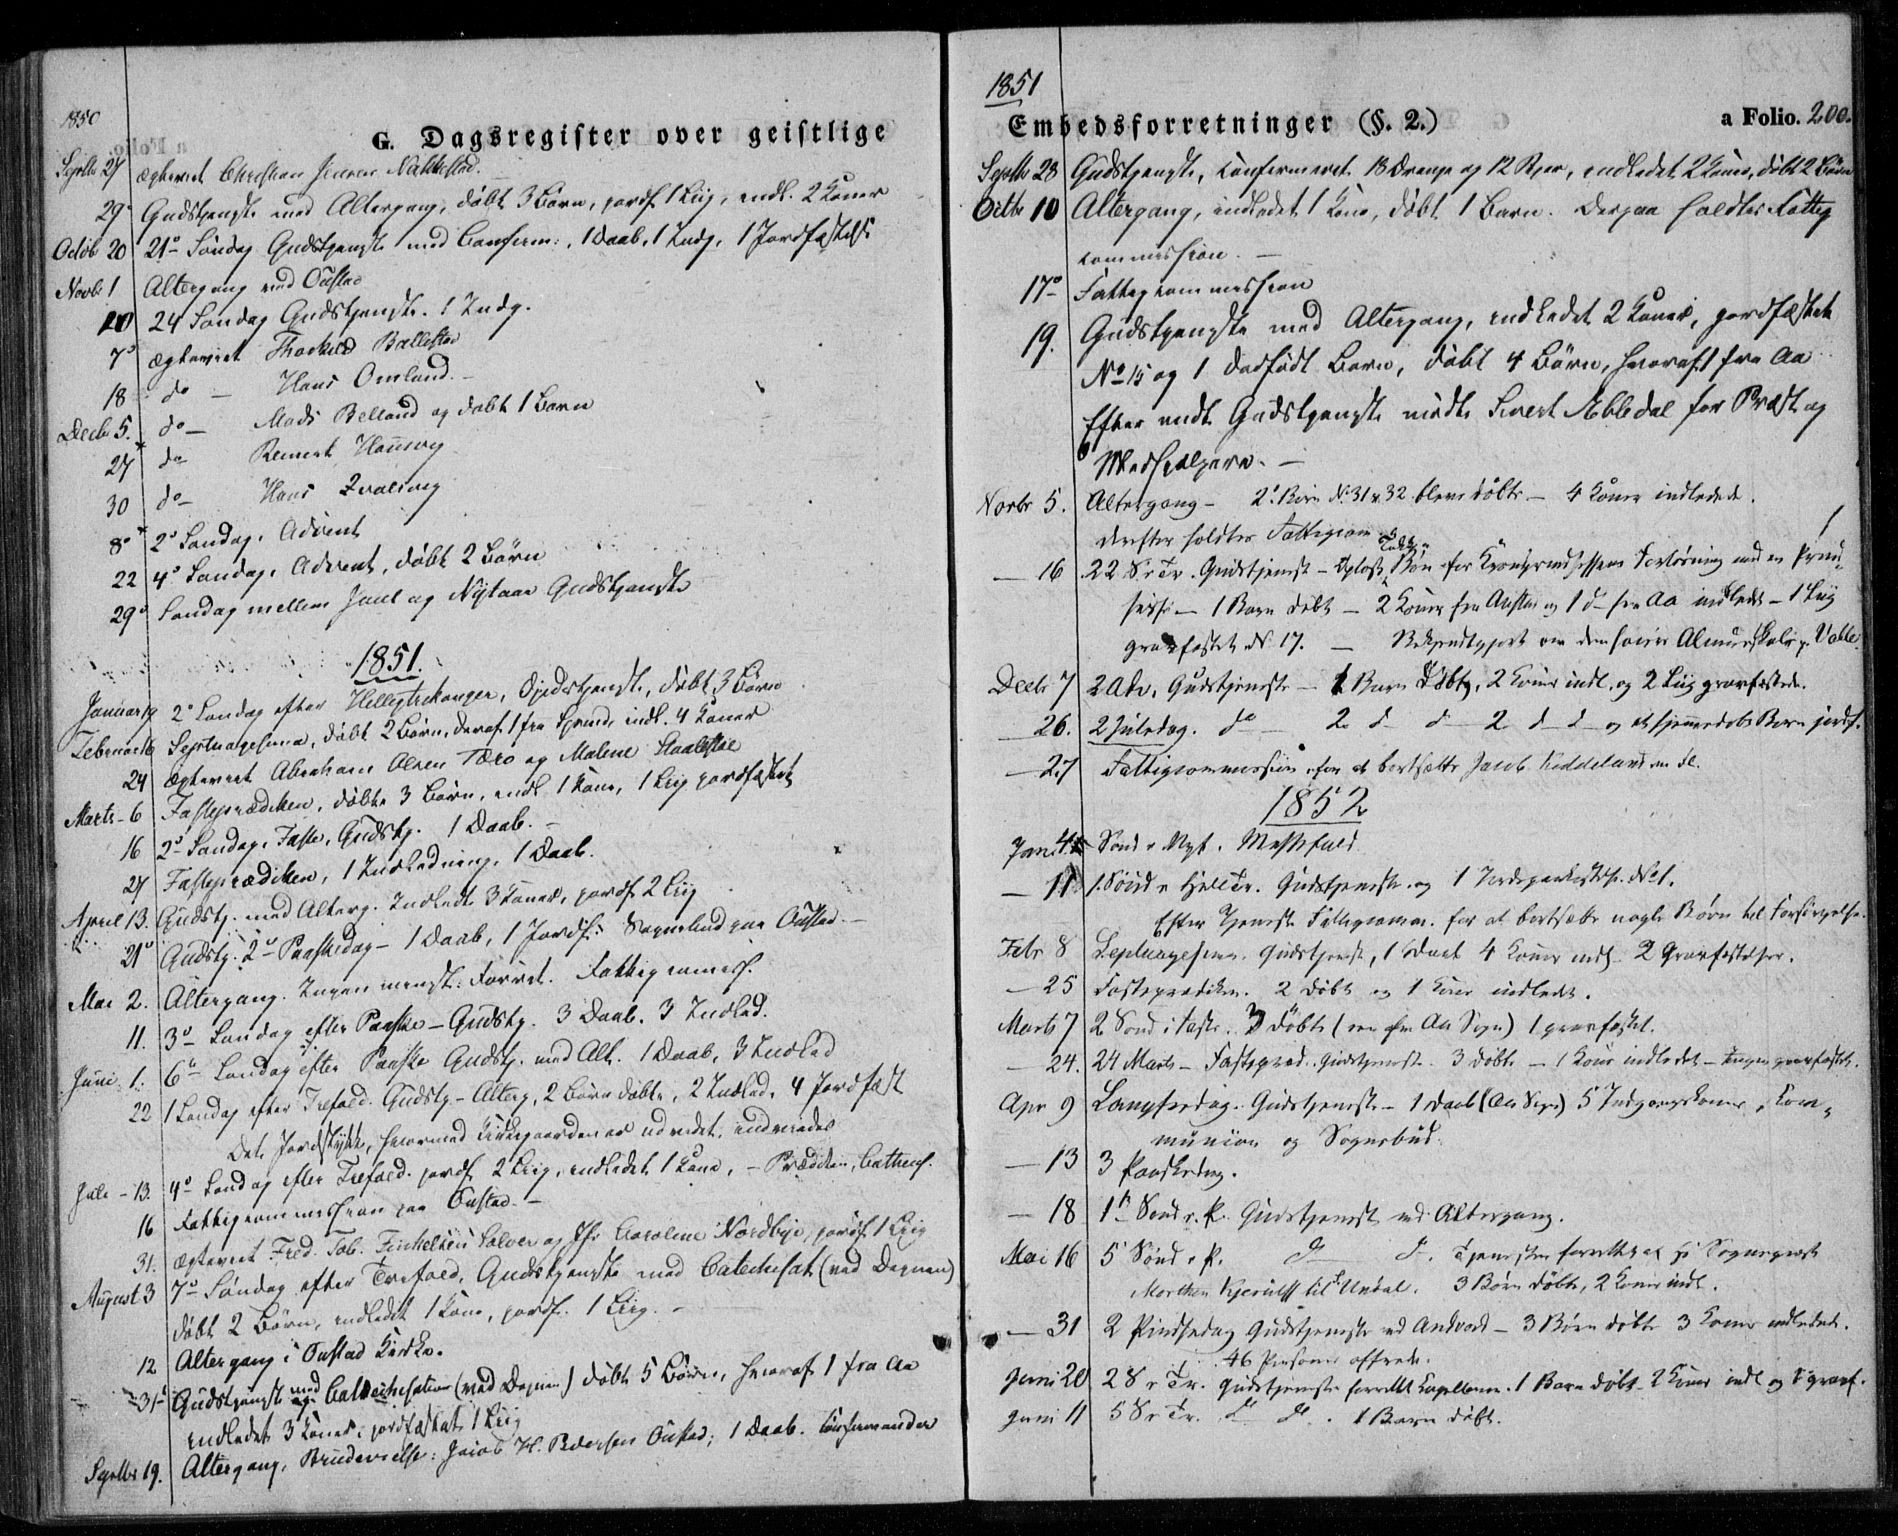 1850
G. Dagsregister over geistlige
Septbr 27 ægteviet Christian Jensen Nakkestad.
29 Gudstjeneste med Altergang, døbt 3 Børn, jordf. 1 Liig, indl. 2 Koner
Octob 20 21de Søndag Gudstjeneste med Confirm:, 1 Daab, 1 Indg, 1 Jordfæstelse
Novbr 1 Altergang ved Oustad
10 24 Søndag Gudstjeneste. 1 Indg.
7 ægteviet Thorkild Ballestad
18 do – Hans Omland. –
Decbr 5. do – Mads Belland og døbt 1 Barn
27 do Reinert
30 do – Hans
8 2de Søndag i Advent
22 4de Søndag i Advent, døbt 2 Børn
29 Søndag mellem Juul og Nytaar Gudstjeneste
1851.
Januar 19 2de Søndag efter Helligtrekonger, Gudstjeneste, døbt 3 Børn
Februar 16 Septuagesima, døbt 2 Børn, deraf 1 fra indl. 4 Koner
24 ægteviet Abraham Olsen og Malene
Marts – 6 Fasteprædiken, døbte 3 Børn, indl. 1 Kone, 1 Liig jordfæstet
16 2de Søndag i Faste, Gudstj. 1 Daab. –
27 Fasteprædiken, 1 Indledning, 1 Daab.
April 13. Gudstj. med Alterg. Indledt 3 Koner, jordf. 2 Liig
21 Gudstj. 2den Paaskedag – 1 Daab, 1 Jordf. Sognebud paa Oustad –
Mai 2. Altergang. Ingen Forret. Fattigcommiss.
11. 3de Søndag efter Paaske – Gudstj. 3 Daab. 3 Indled.
Juni 1. 6te Søndag efter Paaske Gudstj. med Alt. 1 Daab, 3 Indled
22 1 Søndag efter Trefold. Gudstj – Alterg, 2 Børn døbte, 2 Indled, 4 Jordfæst
Det Jordstykke, hvormed Kirkegaarden er udvidet, indviedes
Juli – 13. 4de Søndag efter Trefold. jordf. 2 Liig, indledet 1 Kone, – Prædiken, Cathech.
16 Fattigcommission paa Oustad. –
31. ægteviet Fred. Tob. Salvesen og Jfr Caroline Nordbye, jordf. 1 Liig
August 3 7de Søndag efter Trefold, Gudstjeneste med Catechisat. (ved Degnen)
døbt 2 Børn, indledet 1 Kone, jordf. 1 Liig. –
12 Altergang i Oustad Kirke.
31 Gudstjeneste med Catechisation (ved Degnen) døbt 5 Børn, hvoraf 1 fra Aa
indledet 3 Koner, jordfæstet 1 Liig
Septbr 19. Altergang, Brudevielse: Jacob H. Pedersen Oustad; 1 Daab. Confirmander
1851
Embedsforretninger (§. 2.) a Folio. 200.
Septbr 28 Gudstjeneste, Confirmeret 13 Drenge og 12 Piger, indledet 2 Koner, døbt 2 Børn
Octbr 10 Altergang, indledet 1 Kone, døbt 1 Barn. Derpaa holdtes Fattig
commission. –
17de Fattigcommission
19. Gudstjeneste med Altergang, indledet 2 Koner, jordfæstet
No 15 og 1 dødfødt Barn, døbt 4 Børn, hvoraf 1 fra Aa
Efter endt Gudstjeneste mødte Sivert Æbledal for Præst og
6 Medhjælpere. –
Novbr 5. Altergang – 2de Børn No 31 & 32 bleve døbte – 4 Koner indledede.
derefter holdtes Fattigcom
– 16 22 S. e. Tr. Gudstjenest – Oplæst Takke Bøn for Kronprindsessens Forløsning med en Prind-
sesse – 1 Barn døbt – 2 Koner fra Austad og 1 do fra Aa indledt – 1 Liig
gravfæstet No 17. – Bekjendtgjort om den høiere Almueskole p. Valle.
Decbr 7 2 Adv. Gudstjeneste – 1 Barn Døbtes, 2 Koner indl. og 2 Liig gravfæstede.
– 26. 2 Juledag. do – 2 d d – 2 d d – og et hjemmedøbt Barn jordf.
– 27 Fattigcommission for at bortsætte Jacob Kiddeland m. fl.
1852
Jan. 4 Sønd e. Nyt. Messefald
– 11 1. Sønd e Hell Tr. Gudstjeneste og 1 No 1.
Efter Tjenesten Fattigcomm. for at bortsætte nogle Børn til Forsørgelse.
Febr 8 Septuagesima. Gudstjenest, 1 Daab 4 Koner indl. 2 Gravfæstelser.
– 25 Fasteprædiken. 2 døbt og 1 Kone indledet.
Marts 7 2 Sønd i Faste. 3 Døbte (een fra Aa Sogn) 1 gravfæstet.
– 24. 24 Marts – Fastepræd. Gudstjenest. 3 døbte – 1 Kone indledet – Ingen gravfæstet.
Apr 9 Langfredag. Gudstjeneste – 1 Daab (Aa Sogn) 5 Indgangskoner, Com-
munion og Sognebud.
– 13 3 Paaskedag.
– 18 1ste Sønd e. P. Gudstjenest med Altergang.
Mai 16 5 Sønd e. P. d – d –. Tjenesten forrettes af Hr Sognepræst
Morthen Kjerulff til Undal. 3 Børn døbte, 2 Koner indl.
– 31 2 Pindsedag Gudstjeneste ved Andvord – 3 Børn døbte 3 Koner indledede.
46 Personer offrede.
Juni 20 2 S e Tr. Gudstjeneste forrettet Kapellanen. 1 Barn døbt – 2 Koner indl og 1 gravf.
Juni 11 5 S e Tr. d d. 1 Barn døbt.